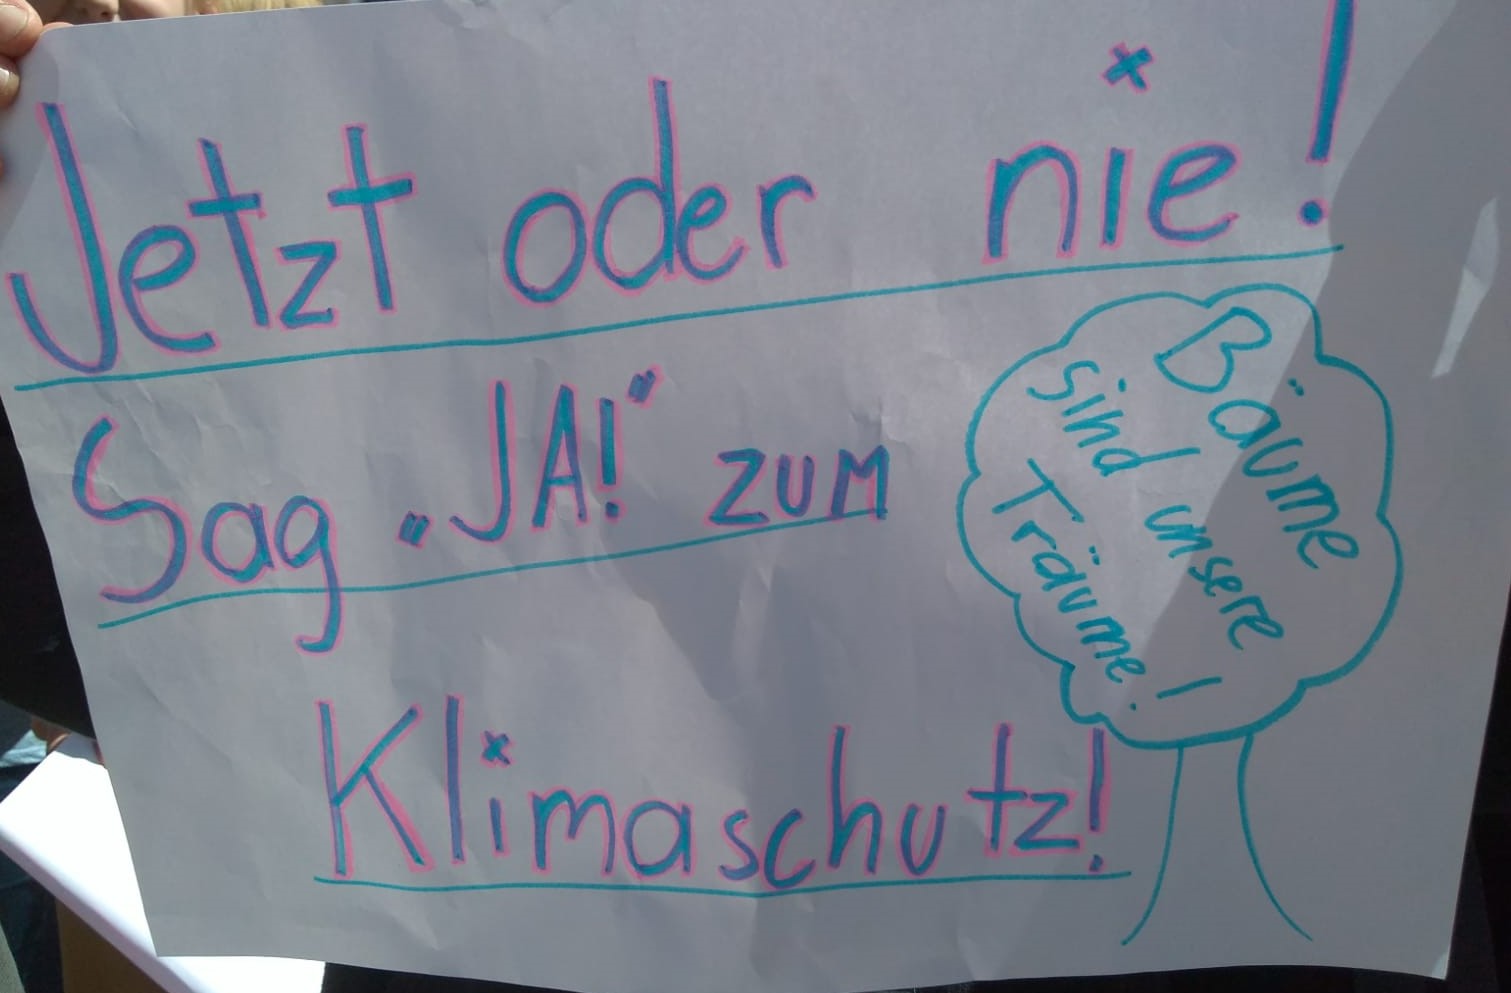 Jetzt oder nie!
Sag „JA!“ zum
Klimaschutz!
Bäume
sind unsere
Träume!